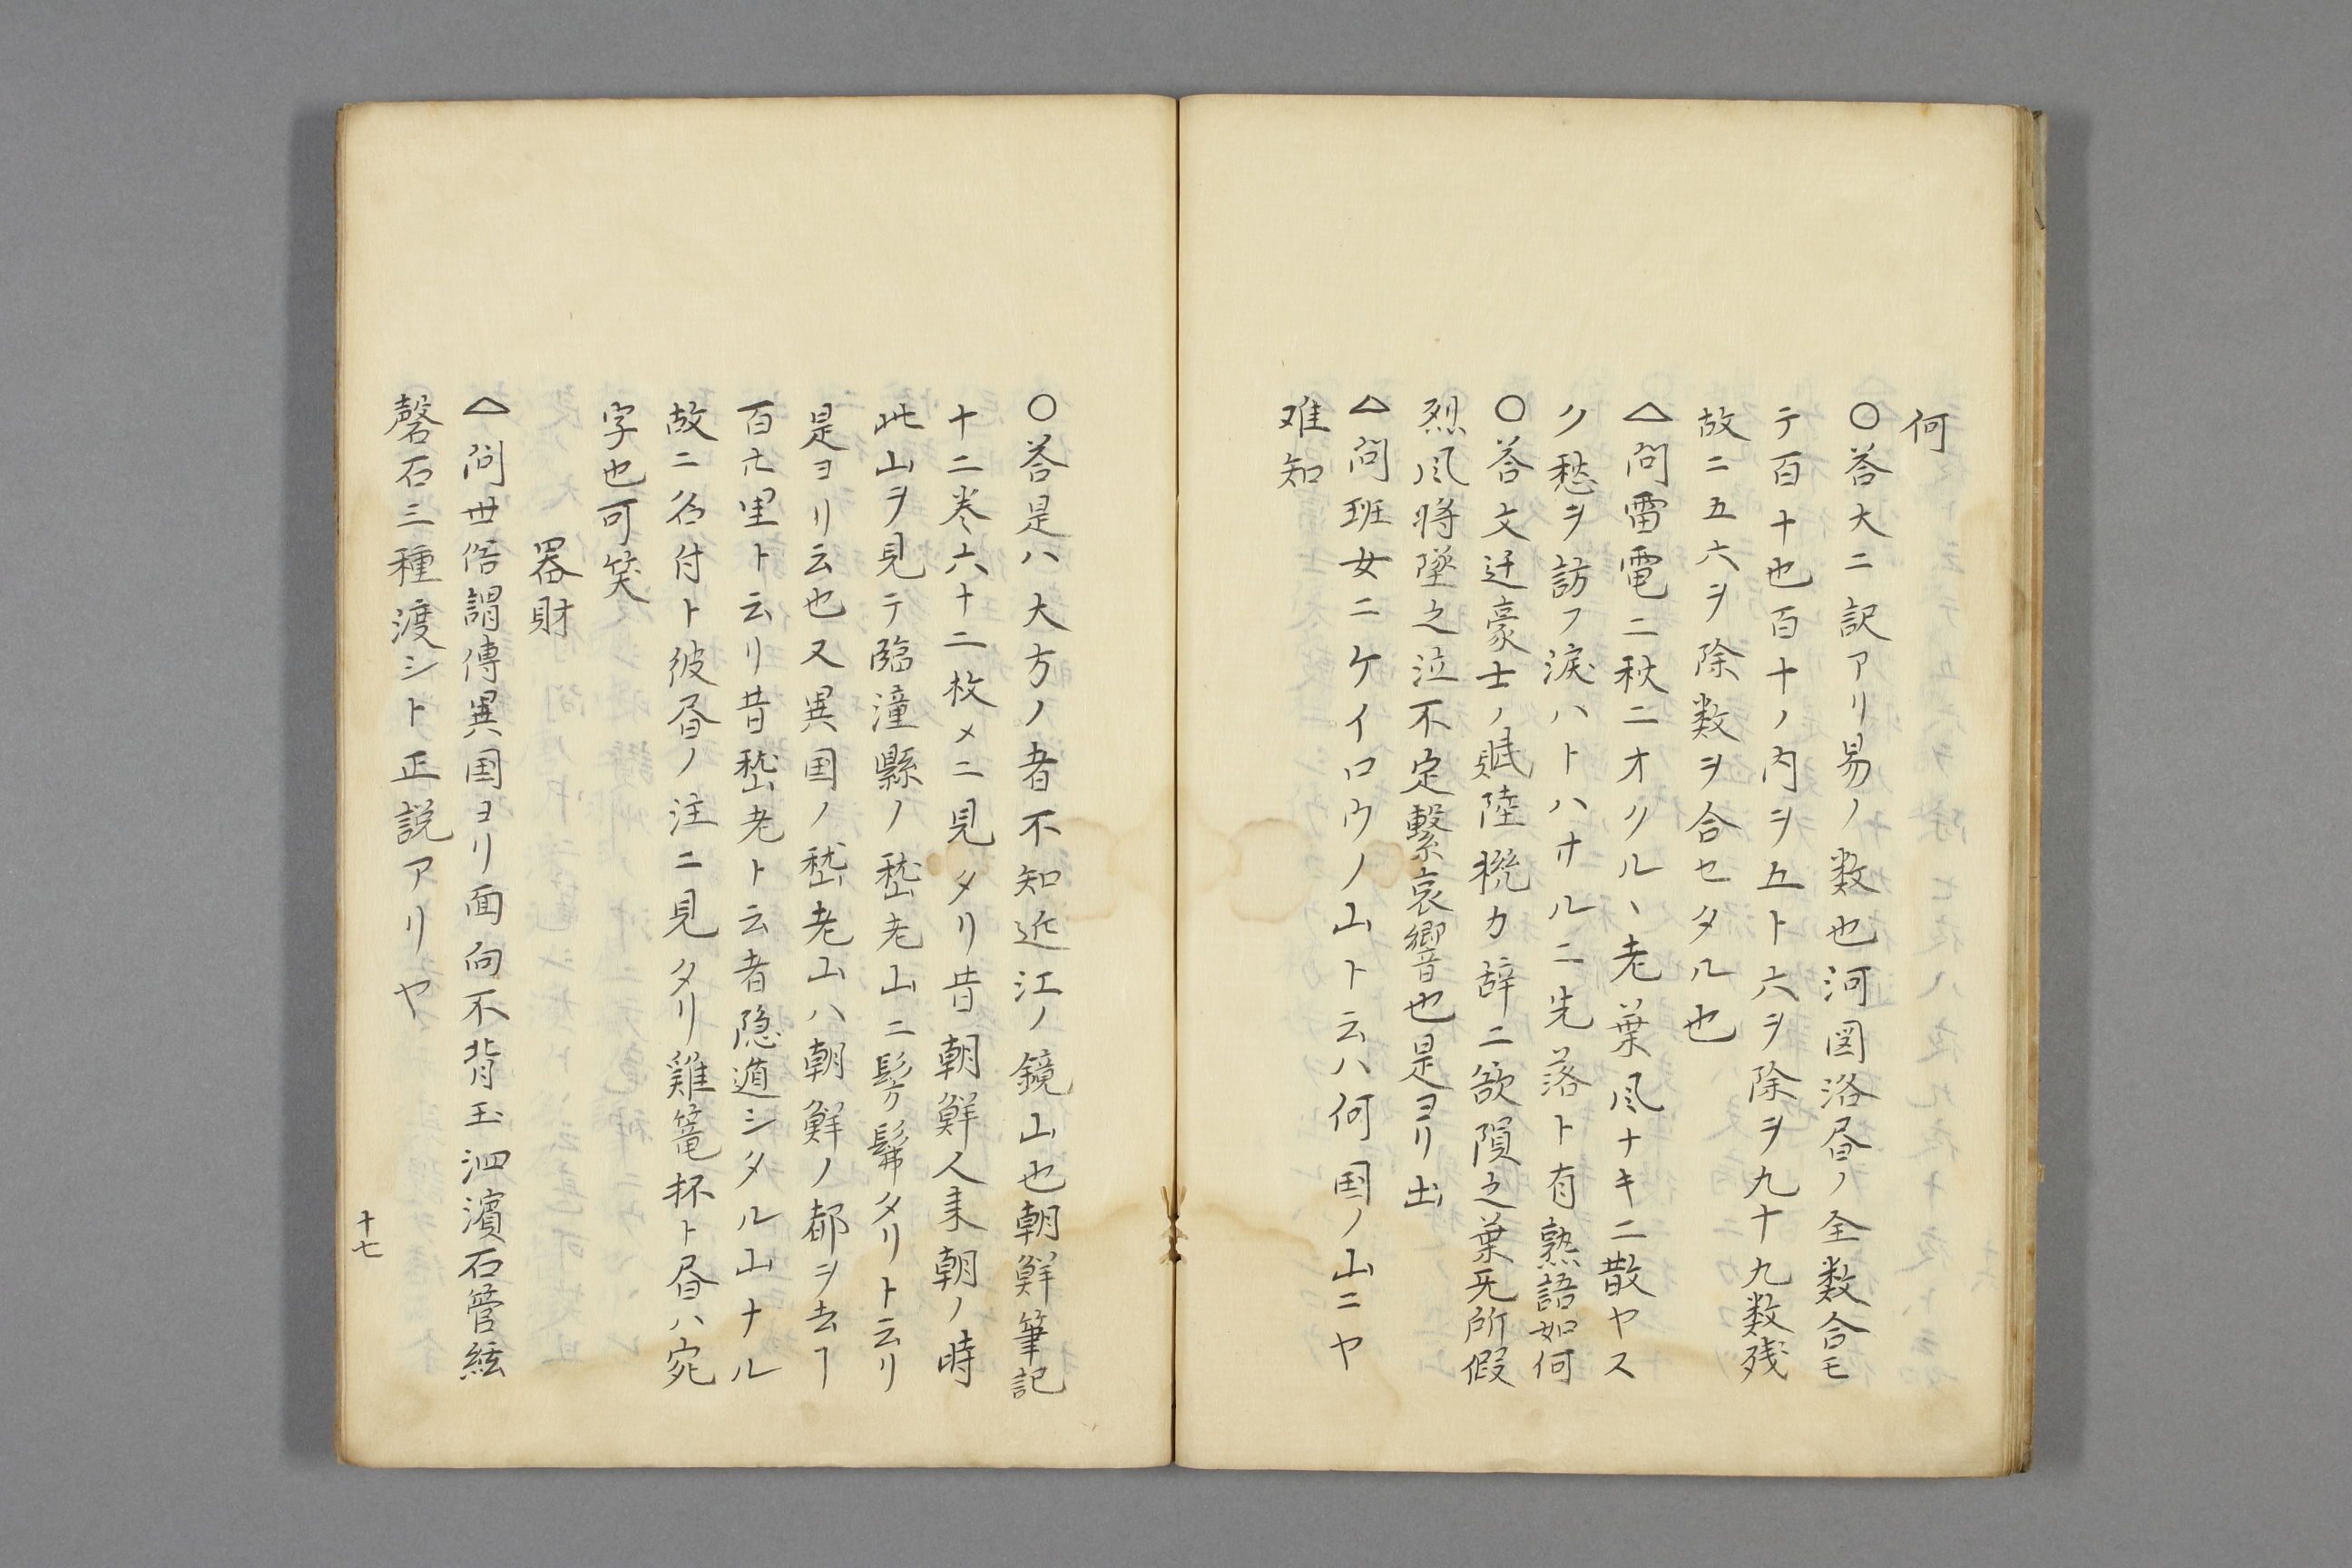 何
○荅大ニ訳アリ易ノ数也河図洛昼ノ全数合モ
テ百十也百十ノ内ヲ五ト六ヲ除ヲ九十九数残
故ニ五六ヲ除数ヲ合セタル也
△問雷電ニ秋ニオクルヽ老葉風ナキニ散ヤス
ク愁ヲ訪フ淚ハトハオルニ先落ト有熟語如何
○荅文迂豪士ノ賦陸機カ辞ニ欲隕之葉旡所假
烈風将墜之泣不定繫哀響也是ヨリ出
△問班女ニケイロウノ山ト云ハ何国ノ山ニヤ
难知
○荅是ハ大方ノ者不知近江ノ鏡山也朝鮮筆記
十二巻六十二枚メニ見タリ昔朝鮮人来朝ノ時
此山ヲ見テ臨潼縣ノ嵆老山ニ髣髴タリト云リ
是ヨリ云也又異国ノ嵆老山ハ朝鮮ノ都ヲ去ヿ
百卄里ト云リ昔嵆老ト云者隠遁シタル山ナル
故ニ名付ト彼昼ノ注ニ見タリ雞篭杯ト昼ハ宛
字也可笑
器財
△問世俗謂傳異国ヨリ面向不背玉泗濱石管絃
磬石三種渡シト正説アリヤ
十七